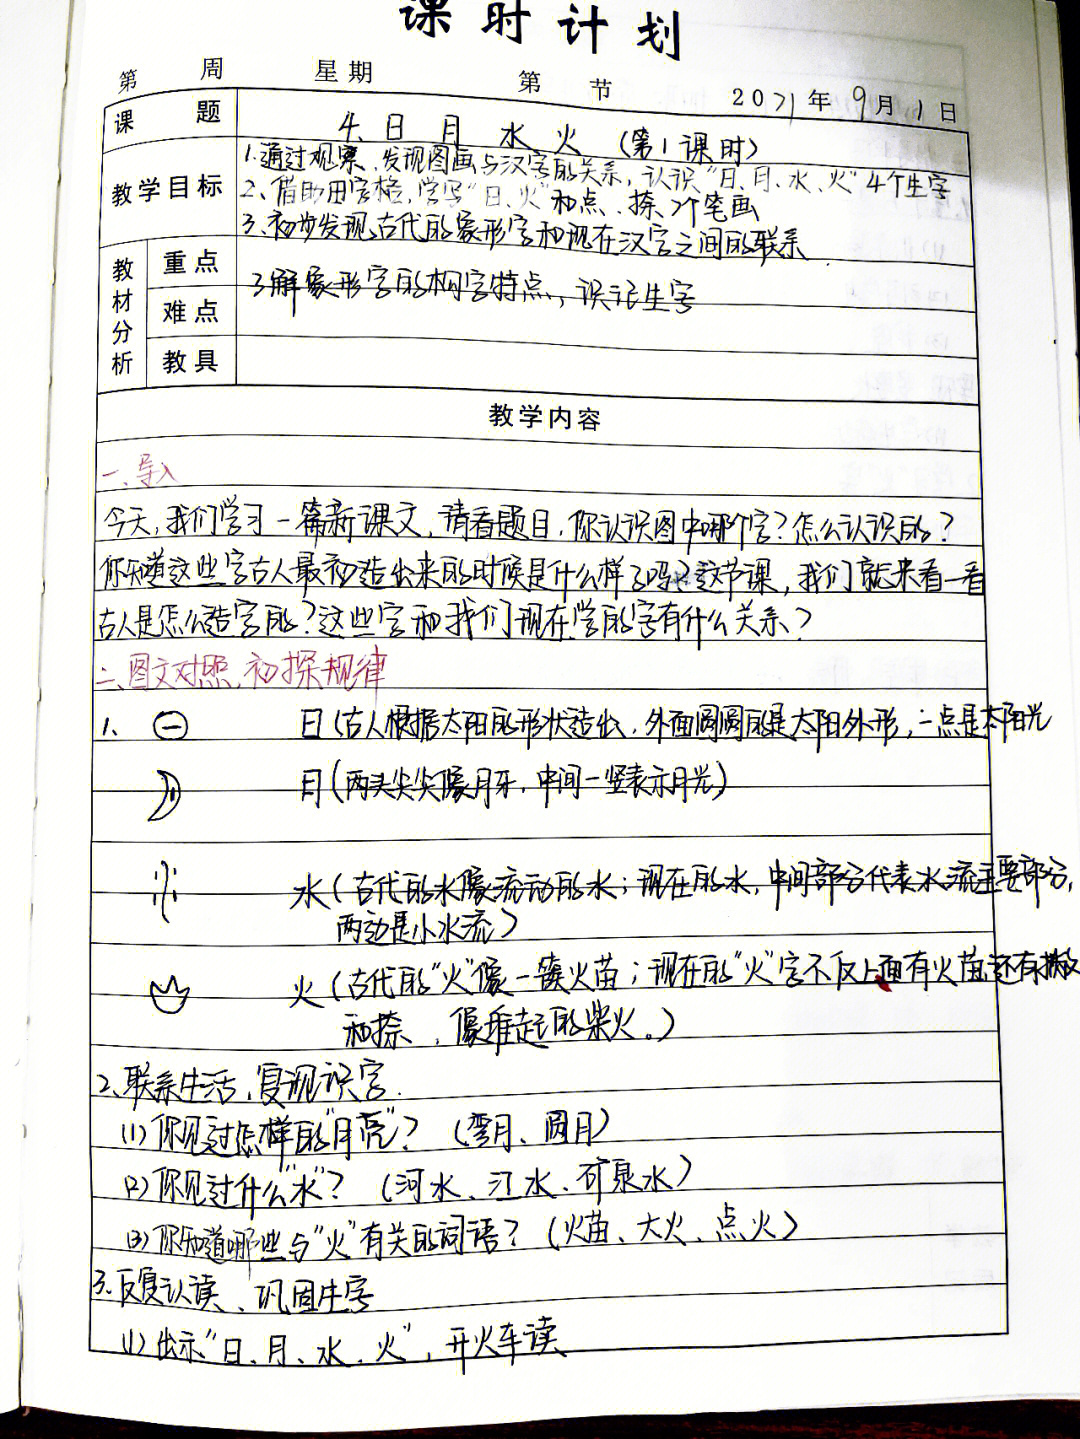 课时计划
第 周 星期 第 节 2021年9月1日
课题 4、日 月 水 火 (第1课时)
教学目标
1.通过观察、发现图画与汉字的关系，认识"日、月、水、火"4个生字
2、借助田字格，学写"日、火"和点、捺2个笔画
3、初步发现古代的象形字和现在汉字之间的联系
教材分析
重点
了解象形字的构字特点，识记生字
难点
教具
教学内容
一、导入
今天，我们学习一篇新课文，请看题目，你认识图中哪个字？怎么认识的？
你知道这些字古人最初造出来的时候是什么样子吗？这节课，我们就来看一看
古人是怎么造字的？这些字和我们现在学的字有什么关系？
二、图文对照，初探规律
1、 日(古人根据太阳的形状造出，外面圆圆的是太阳外形，一点是太阳光
月(两头尖尖像月牙，中间一竖表示月光)
水(古代的水像流动的水；现在的水，中间部分代表水流主要部分，
两边是小水流)
火(古代的"火"像一簇火苗；现在的"火"字不仅上面有火苗还有撇
和捺，像堆起的柴火。)
2、联系生活，复现识字.
(1)你见过怎样的"月亮"？(弯月、圆月)
(2)你见过什么"水"？(河水、江水、矿泉水)
(3)你知道哪些与"火"有关的词语？(火苗、大火、点火)
3、反复认读、巩固生字
(1)出示"日、月、水、火"，开火车读